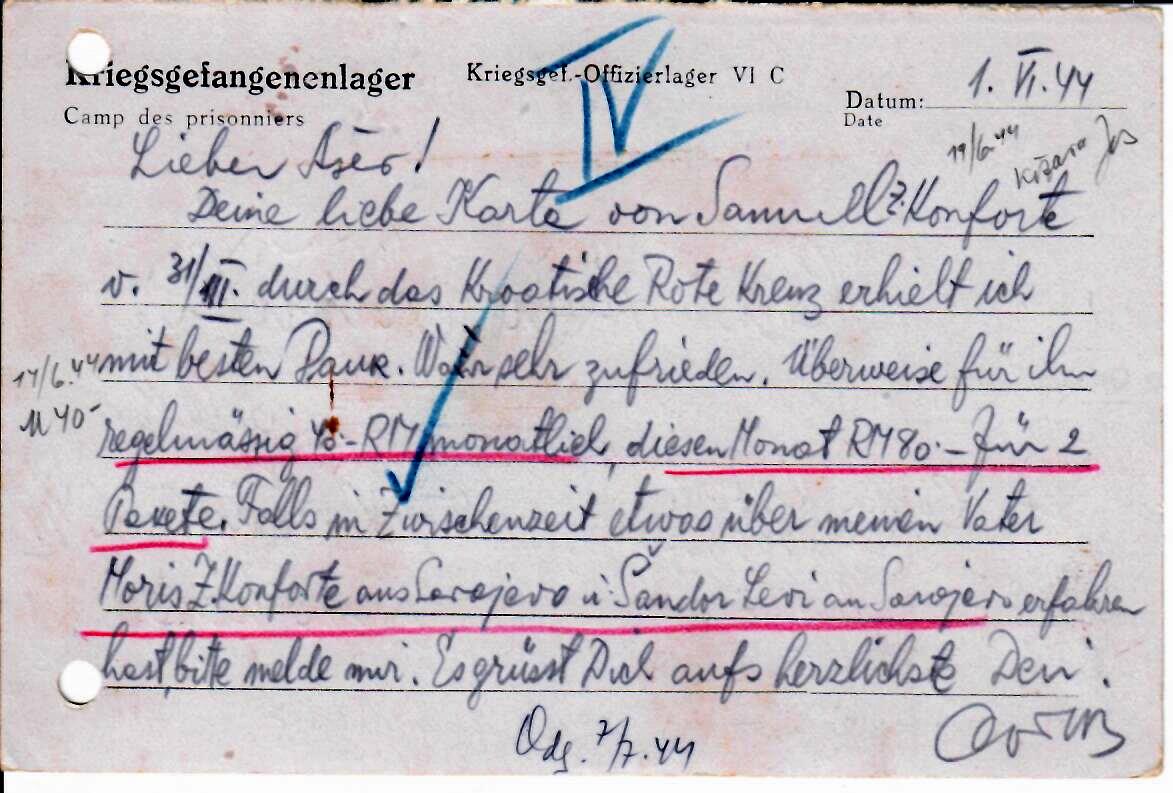 Kriegsgefangenenlager
Kriegsgef.-Offizierlager VI C
Camp des prisonniers
Datum: 1. VI. 44
Date
IV
19/6 44
Lieber Ašer!
Deine liebe Karte von Samuel Z. Konforte
v. 31/III. durch das Kroatische Rote Kreuz erhielt ich
mit besten Dank. War sehr zufrieden. Überweise für ihn
17/6.44
M 40-
regelmässig 40.- RM monatlich, diesen Monat RM 80.- für 2
Pakete. Falls in Zwischenzeit etwas über meinen Vater
Moris Z. Konforte aus Sarajevo u. Šandor Levi au Sarajevo erfahren
hast, bitte melde mir. Es grüsst Dich aufs herzlichste Dein.
Odg. 7/7.44